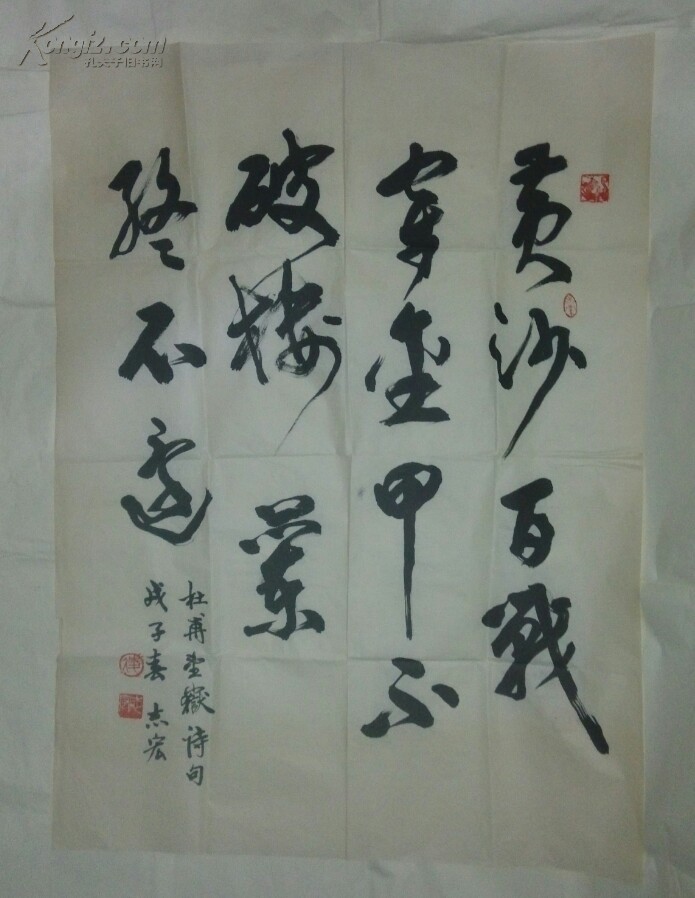 Kongfz.com
孔夫子旧书网
黄沙百戰
穿金甲不
破楼蘭
終不還
杜甫望嶽诗句
戊子春 志宏